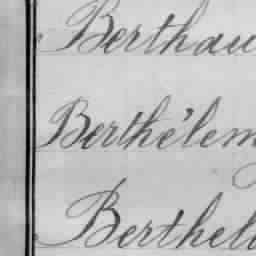 Berthau
Berthélem
Berthel